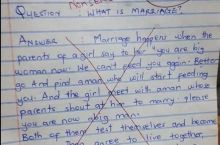 Nonsense
QUESTION WHAT IS MARRIAGE?
ANSWER : Marriage happens when the
parents of a girl say to her "you are big
woman now. We can't feed you again. Better
go and find a man who will start feeding
you. And the girl meet with a man whose
parents shout at him to marry please
you are now a big man.
Both of them test themselves and become
agree to live together,